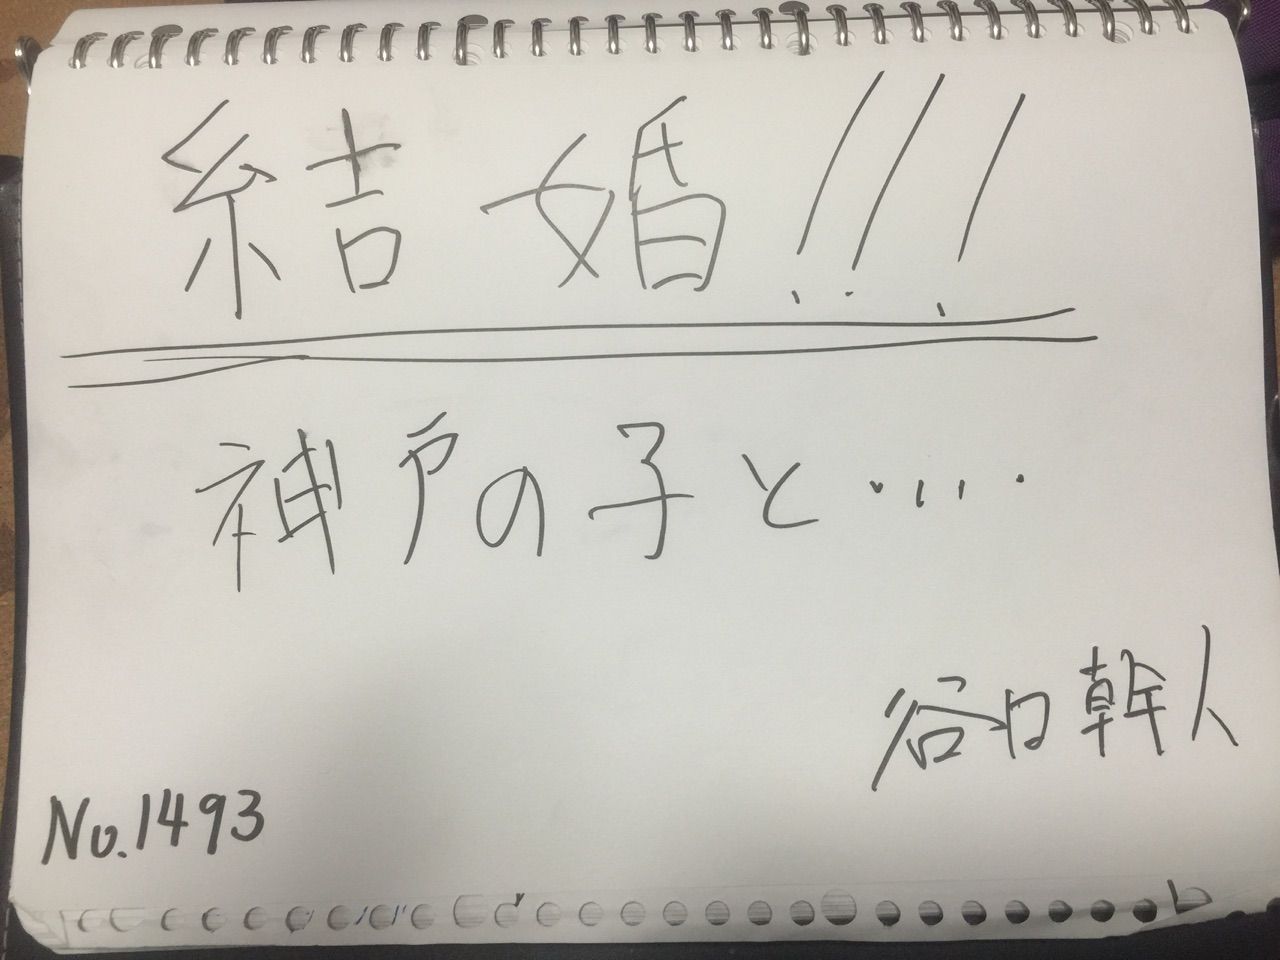 結婚!!!
神戸の子と・・・・
谷口幹人
No.1493